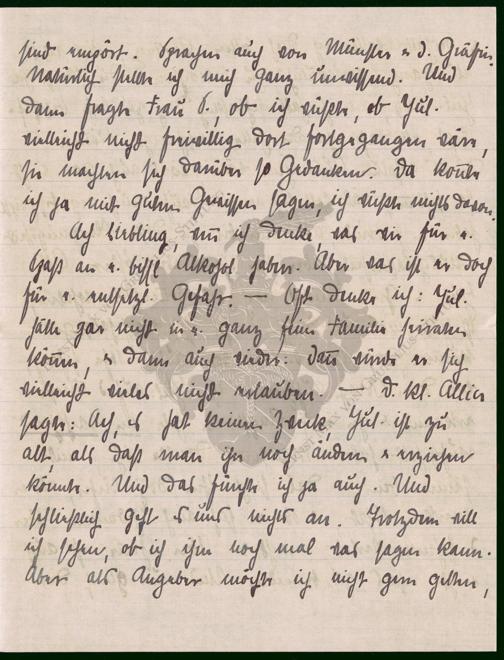 sind empört. Sprachen auch von Münster u. d. Gräfin.
Natürlich stellte ich mich ganz unwissend. Und
dann fragte Frau S., ob ich wüßte, ob Jul.
vielleicht nicht freiwillig dort fortgegangen wäre,
sie machten sich darüber so Gedanken. Da konnte
ich ja mit gutem Gewissen sagen, ich wüßte nichts davon.
Ach Liebling, wenn ich denke, was wir für e.
Spaß an e. bissl Alkohol haben. Aber was ist er doch
für e. entsetzl. Gefahr. — Oft denke ich: Jul.
hätte gar nicht in e. ganz feine Familie heiraten
können, u. dann auch wieder: dann würde er sich
vielleicht vieles nicht erlauben. — d. kl. Allici
sagte: Ach, es hat keinen Zweck, Jul. ist zu
alt, als daß man ihn noch ändern u. erziehen
könnte. Und das fürchte ich ja auch. Und
schließlich geht es uns nichts an. Trotzdem will
ich sehen, ob ich ihm noch mal was sagen kann.
Aber als Angeber möchte ich nicht gern gelten,